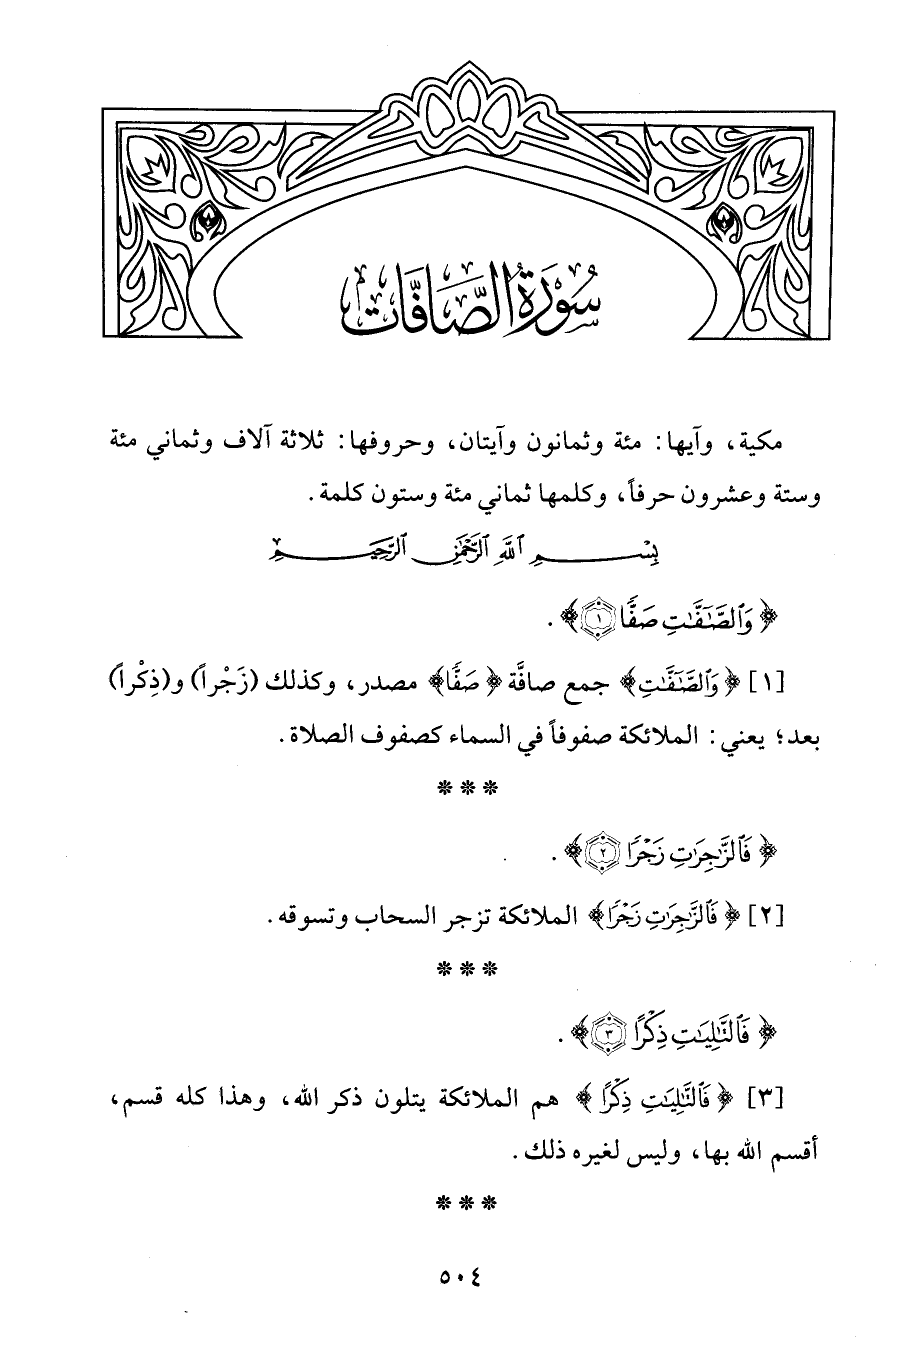 سُورَةُ الصَّافَّاتِ
مكية، وآيها: مئة وثمانون وآيتان، وحروفها: ثلاثة آلاف وثماني مئة
وستة وعشرون حرفاً، وكلمها ثماني مئة وستون كلمة.
بِسْمِ ٱللَّهِ ٱلرَّحْمَٰنِ ٱلرَّحِيمِ
﴿ وَٱلصَّٰٓفَّٰتِ صَفًّا ١ ﴾.
[١] ﴿ وَٱلصَّٰٓفَّٰتِ ﴾ جمع صافَّة ﴿ صَفًّا ﴾ مصدر، وكذلك (زَجْراً) و(ذِكْراً)
بعد؛ يعني: الملائكة صفوفاً في السماء كصفوف الصلاة.
* * *
﴿ فَٱلزَّٰجِرَٰتِ زَجْرًا ٢ ﴾.
[٢] ﴿ فَٱلزَّٰجِرَٰتِ زَجْرًا ﴾ الملائكة تزجر السحاب وتسوقه.
* * *
﴿ فَٱلتَّٰلِيَٰتِ ذِكْرًا ٣ ﴾.
[٣] ﴿ فَٱلتَّٰلِيَٰتِ ذِكْرًا ﴾ هم الملائكة يتلون ذكر الله، وهذا كله قسم،
أقسم الله بها، وليس لغيره ذلك.
* * *
٥٠٤